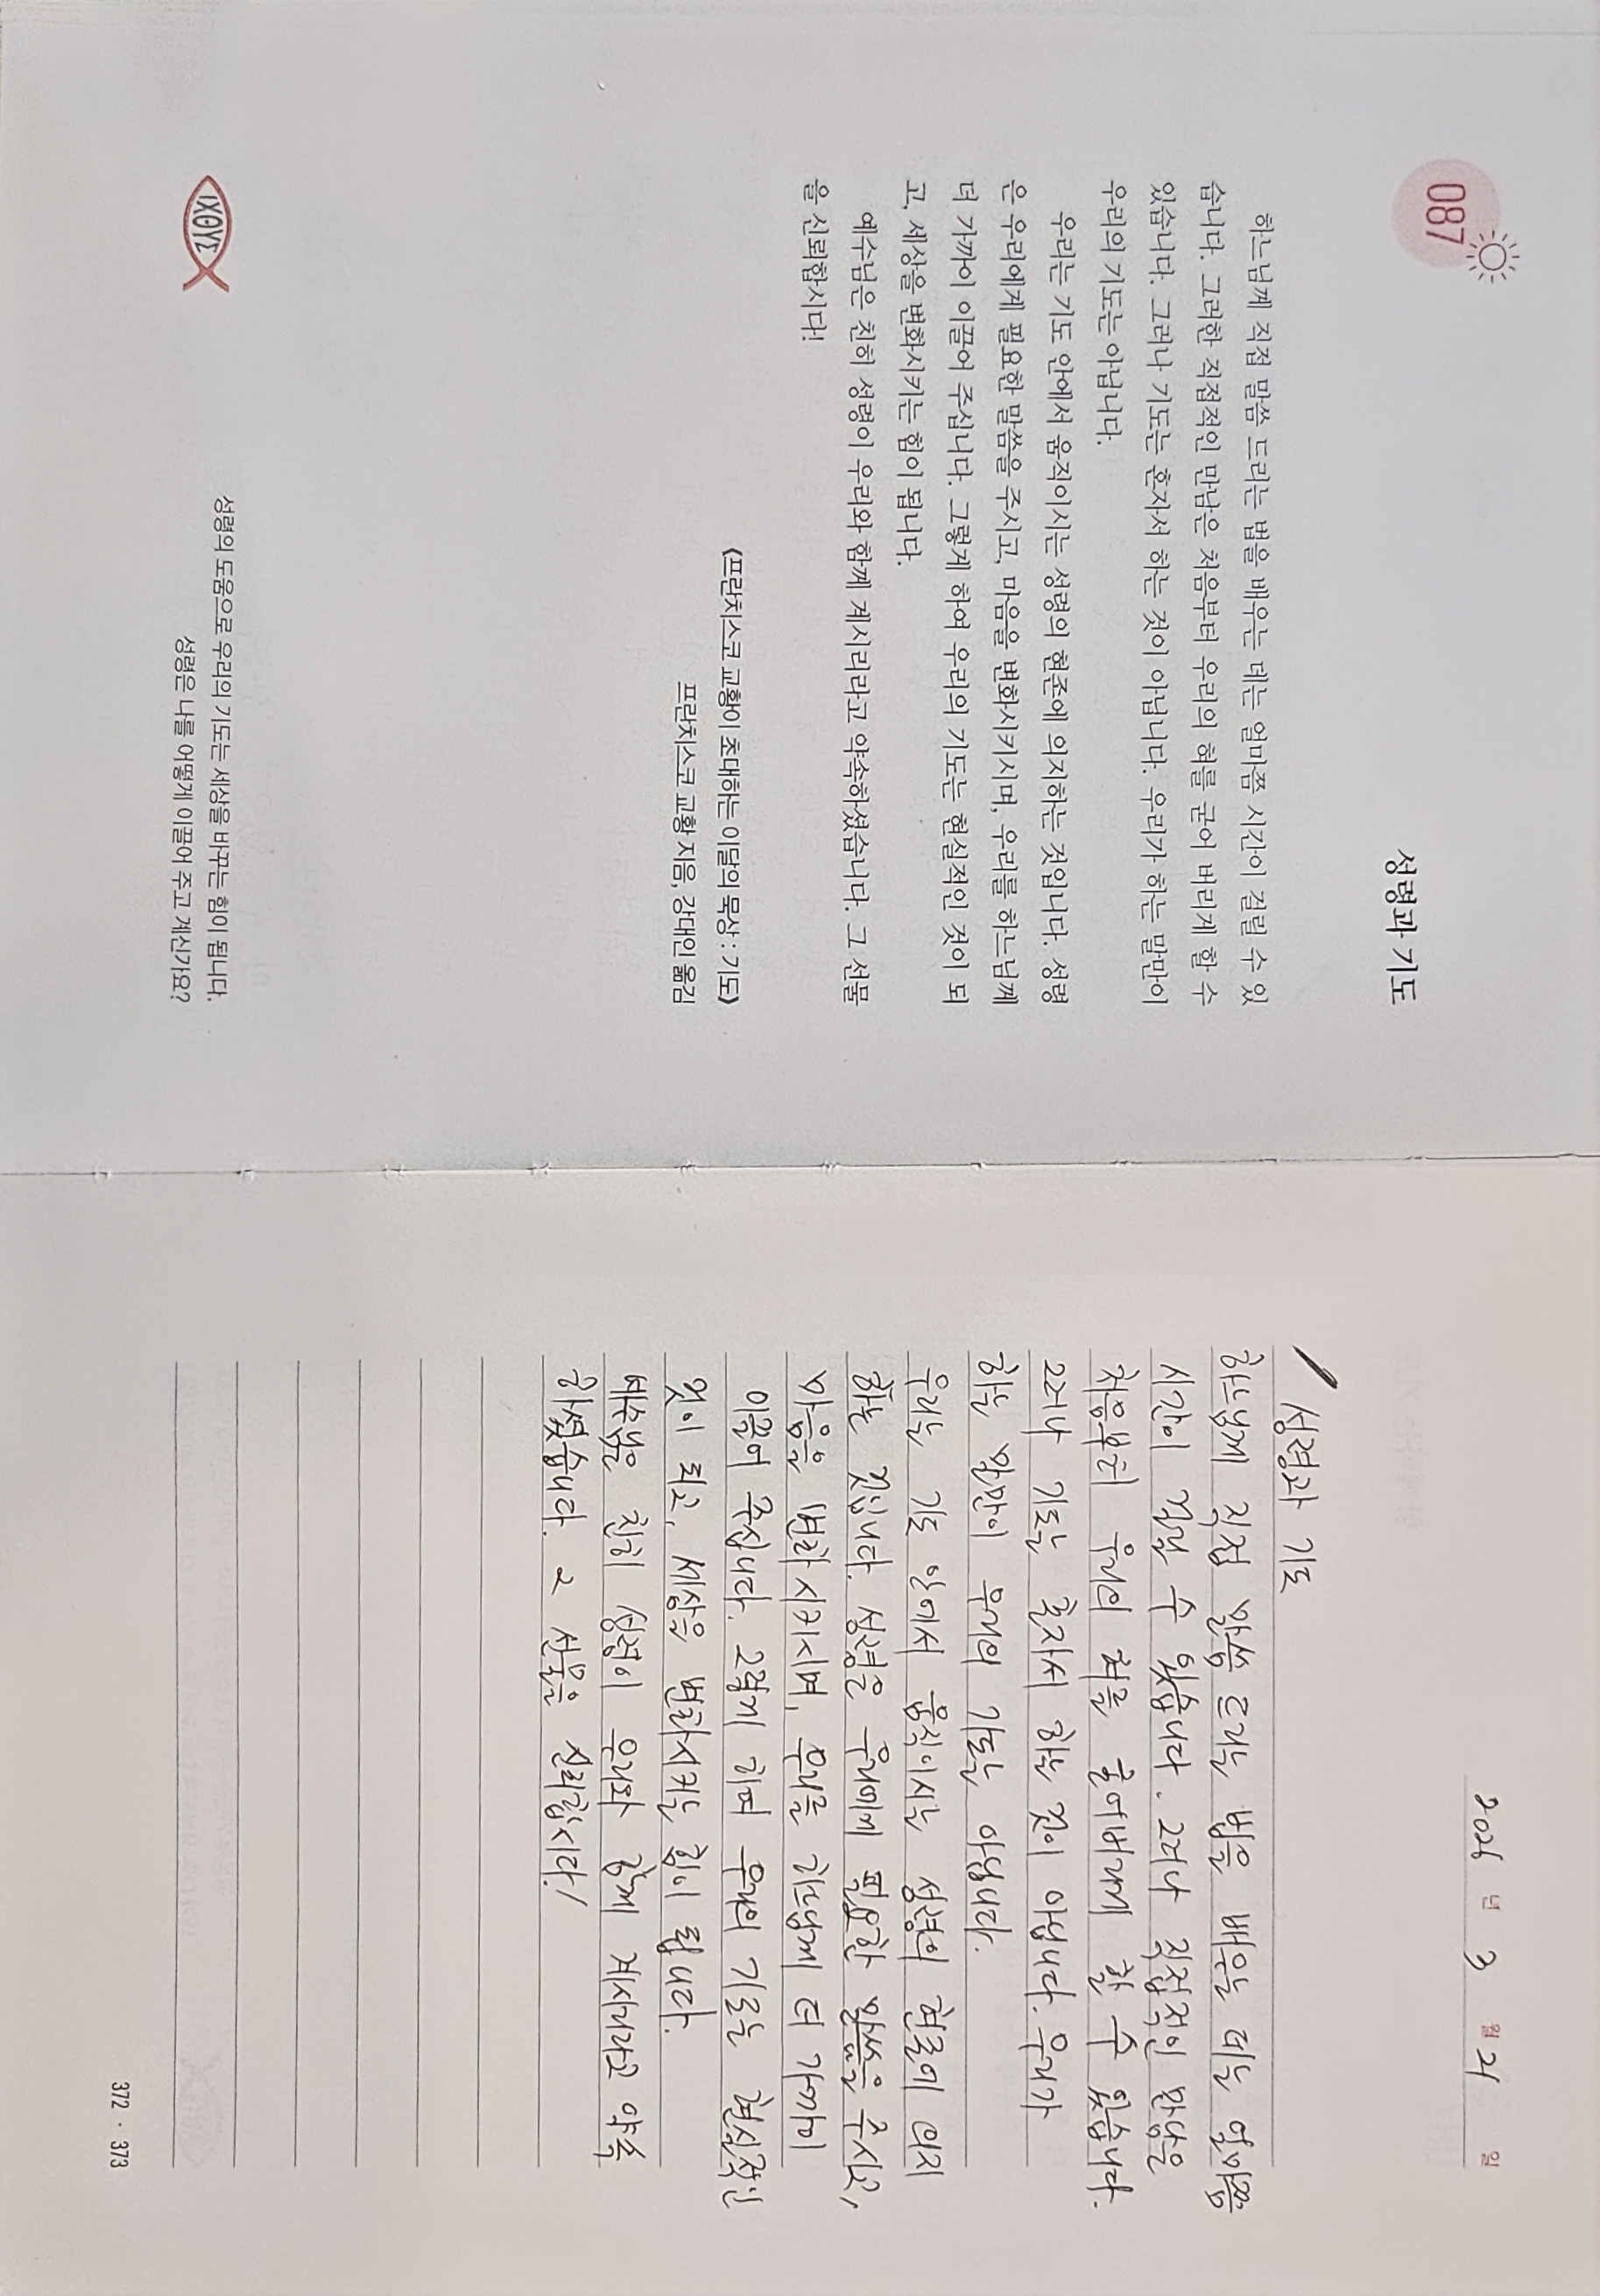 087
성령과 기도
하느님께 직접 말씀 드리는 법을 배우는 데는 얼마쯤 시간이 걸릴 수 있
습니다. 그러한 직접적인 만남은 처음부터 우리의 혀를 굳어 버리게 할 수
있습니다. 그러나 기도는 혼자서 하는 것이 아닙니다. 우리가 하는 말만이
우리의 기도는 아닙니다.
우리는 기도 안에서 움직이시는 성령의 현존에 의지하는 것입니다. 성령
은 우리에게 필요한 말씀을 주시고, 마음을 변화시키시며, 우리를 하느님께
더 가까이 이끌어 주십니다. 그렇게 하여 우리의 기도는 현실적인 것이 되
고, 세상을 변화시키는 힘이 됩니다.
예수님은 친히 성령이 우리와 함께 계시리라고 약속하셨습니다. 그 선물
을 신뢰합시다!
《프란치스코 교황이 초대하는 이달의 묵상 : 기도》
프란치스코 교황 지음, 강대인 옮김
ΙΧΘΥΣ
성령의 도움으로 우리의 기도는 세상을 바꾸는 힘이 됩니다.
성령은 나를 어떻게 이끌어 주고 계신가요?
2026 년 3 월 21 일
성령과 기도
하느님께 직접 말씀 드리는 법을 배우는 데는 얼마쯤
시간이 걸릴 수 있습니다. 그러나 직접적인 만남은
처음부터 우리의 혀를 굳어버리게 할 수 있습니다.
그러나 기도는 혼자서 하는 것이 아닙니다. 우리가
하는 말만이 우리의 기도는 아닙니다.
우리는 기도 안에서 움직이시는 성령의 현존에 의지
하는 것입니다. 성령은 우리에게 필요한 말씀을 주시고,
마음을 변화시키시며, 우리를 하느님께 더 가까이
이끌어 주십니다. 그렇게 하여 우리의 기도는 현실적인
것이 되고, 세상을 변화시키는 힘이 됩니다.
예수님은 친히 성령이 우리와 함께 계시리라고 약속
하셨습니다. 그 선물을 신뢰합시다!
372 · 373